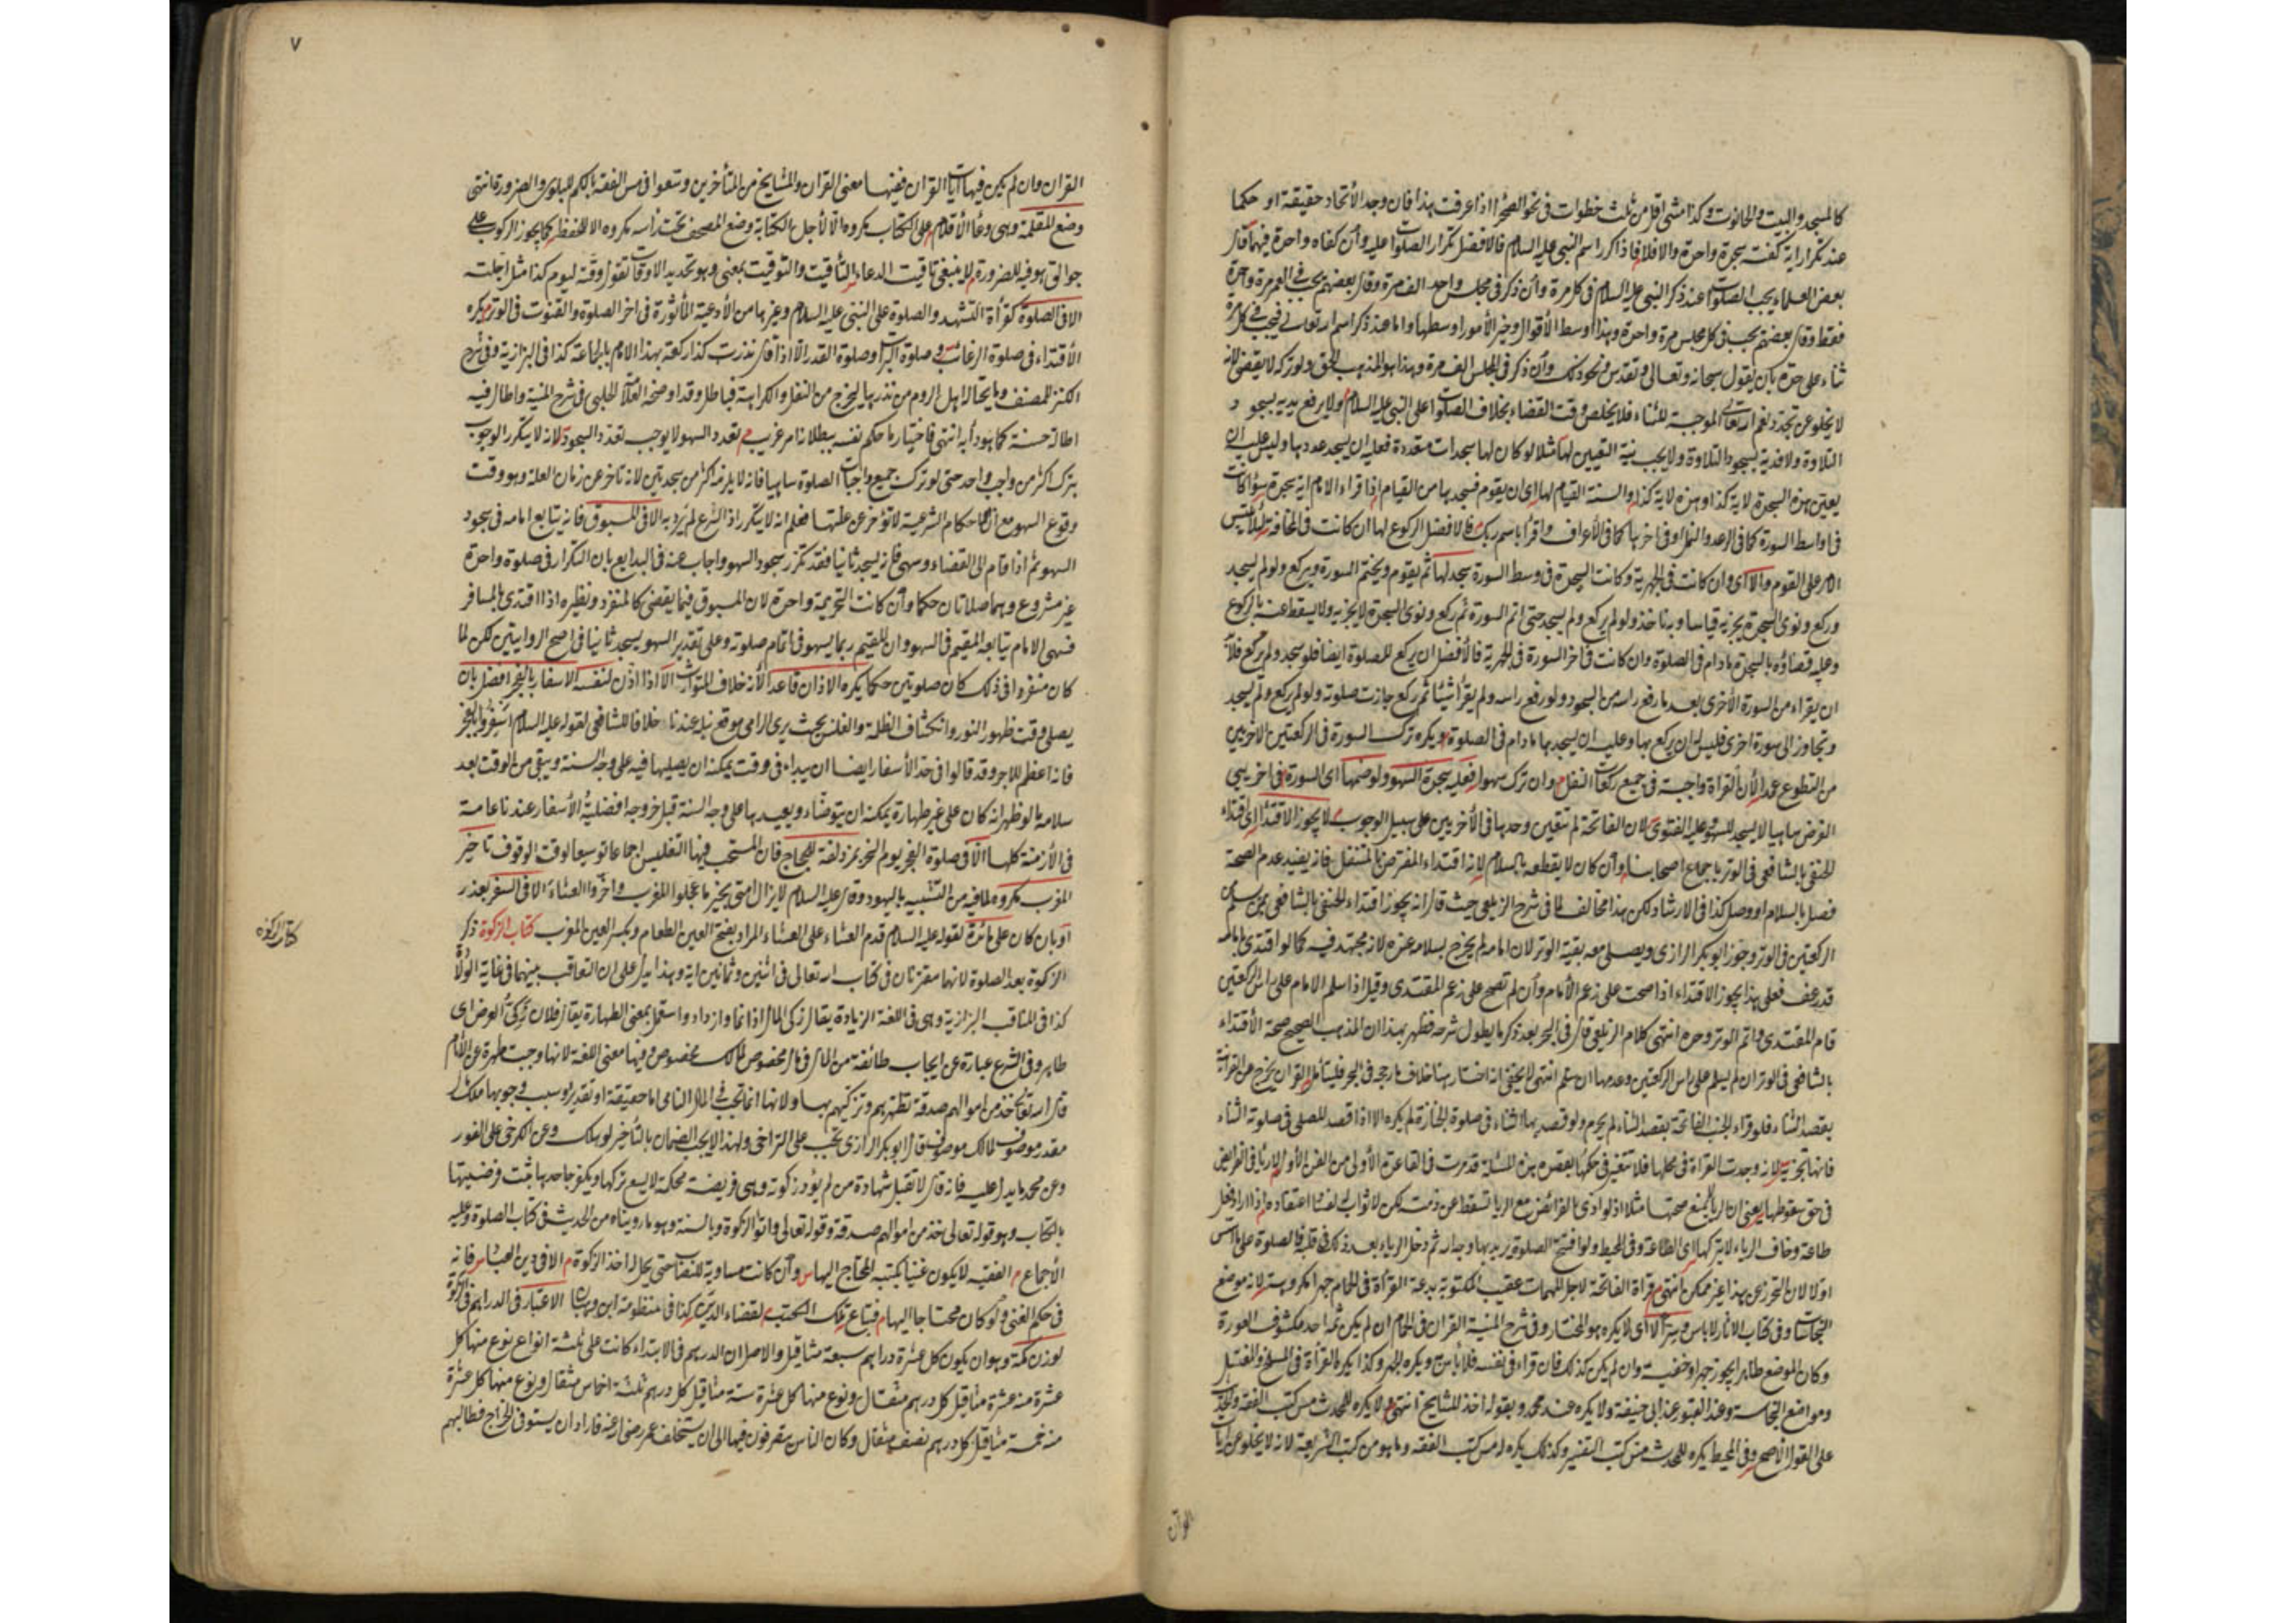 كالمسجد والبيت والحانوت وكذا مشى اقل من ثلث خطوات فى نحو الصحرا اذا عرفت هذا فان وجد الاتحاد حقيقة او حكما
عند تكرار اية كفته سجدة واحدة والا فلا فاذا كرر اسم النبى عليه السلام فالافضل تكرار الصلوات عليه وان كفاه واحدة فيهما قال
بعض العلماء يجب الصلوات عند ذكر النبى عليه السلام فى كل مرة وان ذكر فى مجلس واحد الف مرة وقال بعضهم يجب فى العمر مرة واحدة
فقط وقال بعضهم يجب فى كل مجلس مرة واحدة وهذا اوسط الأقوال وخير الأمور اوسطها واما عند ذكر اسم الله تعالى فيجب فى كل مرة
ثناء على حدة بان يقول سبحانه وتعالى وتقدس ونحو ذلك وان ذكر فى المجلس الف مرة وهذا هو المذهب الحق ولو تركه لا يقضى لانه
لا يخلو عن تجدد نعم الله تعالى الموجبة للثناء فلا يخلص وقت القضاء بخلاف الصلوات على النبى عليه السلام ولا يرفع يديه لسجود
التلاوة ولا فدية لسجود التلاوة ولا يجب نية التعيين لها مثلا لو كان لها سجدات متعددة فعليه ان يسجد عددها وليس عليه ان
يعين هذه السجدة لاية كذا وهذه لاية كذا والسنة القيام لها اى ان يقوم فيسجدها من القيام اذا قراء الامام اية سجدة سواء كانت
فى اواسط السورة كما فى الرعد والنمل او فى اخرها كما فى الأعراف واقرأ باسم ربك فالافضل الركوع لها ان كانت فى المخافتة لئلا يلتبس
الامر على القوم والا اى وان كانت فى الجهرية وكانت السجدة فى وسط السورة سجد لها ثم يقوم ويختم السورة ويركع ولو لم يسجد
وركع ونوى السجدة يجزيه قياسا وبه ناخذ ولو لم يركع ولم يسجد حتى اتم السورة ثم ركع ونوى السجدة لا يجزيه ولا يسقط عنه بالركوع
وعليه قضاؤه بالسجدة ما دام فى الصلوة وان كانت فى اخر السورة فى الجهرية فالأفضل ان يركع للصلوة ايضا فلو سجد ولم يركع فلا بد
ان يقراء من السورة الأخرى بعد ما رفع راسه من السجود ولو رفع راسه ولم يقرأ شيئا ثم ركع جازت صلوته ولو لم يركع ولم يسجد
وتجاوز الى سورة اخرى فليس له ان يركع بها وعليه ان يسجدها ما دام فى الصلوة ويكره ترك السورة فى الركعتين الاخريين
من التطوع عمدا لان القراة واجبة فى جميع ركعات النفل وان ترك سهوا فعليه سجدة السهو ولو ضمها اى السورة فى اخريى
الفرض ساهيا لا يسجد للسهو وعليه الفتوى لان الفاتحة لم تتعين وحدها فى الأخريين على سبيل الوجوب لا يجوز الاقتداء اى اقتداء
الحنفى بالشافعى فى الوتر باجماع اصحابنا وان كان لا يقطعه بالسلام لانه اقتداء المفترض بالمتنفل فانه يفيد عدم الصحة
فصل بالسلام او وصل كذا فى الارشاد لكن هذا مخالف لما فى شرح الزيلعى حيث قال انه يجوز اقتداء الحنفى بالشافعى بمن يسلم
الركعتين فى الوتر وجوز ابو بكر الرازى ويصلى معه بقية الوتر لان امامه لم يخرج بسلامه عنده لانه مجتهد فيه كما لو اقتدى بامام
قد رعف فعلى هذا يجوز الاقتداء اذا صحت على زعم الأمام وان لم تصح على زعم المقتدى وقيل اذا سلم الامام على راس الركعتين
قام المقتدى واتم الوتر وحده انتهى كلام الزيلعى قال فى البحر بعد ذكر ما يطول شرحه فظهر بهذا ان المذهب الصحيح صحة الأقتداء
بالشافعى فى الوتر ان لم يسلم على راس الركعتين وعدمها ان سلم انتهى لا يخفى انه اختار هنا خلاف ما رجحه فى البحر فليتأمل القران يخرج عن القرانية
بقصد الثناء فلو قراء الجنب الفاتحة بقصد الثناء لم يحرم ولو قصد بها الثناء فى صلوة الجنازة لم يكره الا اذا قصد المصلى فى صلوة الثناء
فانها تجزيه لانه وجدت القراءة فى محلها فلا تتغير فى حكمها بقصده هذه المسئلة قد مرت فى القاعدة الأولى من الفن الأول لا رياء فى الفرائض
فى حق سقوطها يعنى ان الريا لا يمنع صحتها مثلا اذا لو ادى الفرائض مع الريا تسقط عن ذمته لكن لا ثواب له اذا اراد فعل
طاعة وخاف الرياء لا يتركها اى الطاعة وفى المحيط ولو افتتح الصلوة يريد بها وجه الله ثم دخل الرياء بعد ذلك فى قلبه فالصلوة على ما اسس
اولا لان التحرز عن هذا غير ممكن انتهى قراة الفاتحة لاجل المهمات عقيب المكتوبة بدعة القرأة فى الحمام جهرا مكروهة لانه موضع
النجاسات وفى كتاب الاثار لا باس وسرا لا اى لا يكره هو المختار وفى شرح المنية القران فى الحمام ان لم يكن ثمة احد مكشوف العورة
وكان الموضع طاهرا يجوز جهرا وخفية وان لم يكن كذلك فان قراء فى نفسه فلا باس ويكره الجهر وكذا يكره القرأة فى المسلخ والمغتسل
ومواضع النجاسة وعند القبور عند ابى حنيفة ولا يكره عند محمد وبقوله اخذ المشايخ انتهى ولا يكره للمحدث مس كتب الفقه والحديث
على القول الأصح وفى المحيط يكره للمحدث مس كتب التفسير وكذلك يكره له مس كتب الفقه وما هو من كتب الشريعة لانه لا يخلو عن ايات
القرآن
٧
القران وان لم يكن فيها ايات القران ففيها معنى القران والمشايخ من المتأخرين وسعوا فى مس الفقه بالكم للبلوى والضرورة انتهى
وضع المقلمة وهى وعاء الأقلام على الكتاب مكروه الا لأجل الكتابة وضع المصحف تحت راسه مكروه الا للحفظ كما يجوز الركوب على
جوالق هو فيه للضرورة لا ينبغى تاقيت الدعاء التأقيت والتوقيت بمعنى وهو تحديد الاوقات تقول وقته ليوم كذا مثل اجلته
الا فى الصلوة كقرأة التشهد والصلوة على النبى عليه السلام وغيرها من الأدعية المأثورة فى اخر الصلوة والقنوت فى الوتر يكره
الأقتداء فى صلوة الرغائب وصلوة البراءة وصلوة القدر الا اذا قال نذرت كذا ركعة بهذا الامام بالجماعة كذا فى البزازية وفى شرح
الكنز للمصنف وما يحتاله اهل الروم من نذرها ليخرج من النفل والكراهة فباطل وقد اوضحه العلامة الحلبى فى شرح المنية واطال فيه
اطالة حسنة كما هو دأبه انتهى فاختياره ما حكم نفسه ببطلانه امر غريب تعدد السهو لا يوجب تعدد السجود لانه لا يتكرر الوجوب
بترك اكثر من واجب واحد حتى لو ترك جميع واجبات الصلوة ساهيا فانه لا يلزمه اكثر من سجدتين لانه تاخر عن زمان العلة وهو وقت
وقوع السهو مع ان الأحكام الشرعية لا تؤخر عن علتها فعلم انه لا يتكرر اذ الشرع لم يرد به الا فى المسبوق فانه يتابع امامه فى سجود
السهو ثم اذا قام الى القضاء وسهى فانه يسجد ثانيا فقد تكرر سجود السهو واجاب عنه فى البدايع بان التكرار فى صلوة واحدة
غير مشروع وهما صلاتان حكما وان كانت التحريمة واحدة لان المسبوق فيما يقضى كالمنفرد ونظيره اذا اقتدى بالمسافر
فسهى الامام يتابعه المقيم فى السهو وان المقيم ربما يسهو فى اتمام صلوته وعلى تقدير السهو يسجد ثانيا فى اصح الروايتين لكن لما
كان منفردا فى ذلك كان صلوتين حكما يكره الاذان قاعدا لأنه خلاف المتوارث الا اذا اذن لنفسه الاسفار بالفجر افضل بان
يصلى وقت ظهور النور وانكشاف الظلمة والغلس بحيث يرى الرامى موقع نبله عندنا خلافا للشافعى لقوله عليه السلام اسفروا بالفجر
فانه اعظم للاجر وقد قالوا فى حد الأسفار ايضا ان يبداء فى وقت يمكنه ان يصليها فيه على وجه السنة ويبقى من الوقت بعد
سلامه ما لو ظهر انه كان على غير طهارة يمكنه ان يتوضاء ويعيدها على وجه السنة قبل خروجه افضلية الأسفار عندنا عامة
فى الأزمنة كلها الا فى صلوة الفجر يوم النحر بمزدلفة للحجاج فان المستحب فيها التغليس اجماعا توسيعا لوقت الوقوف تاخير
المغرب مكروه لما فيه من التشبيه باليهود وقال عليه السلام لا يزال امتى بخير ما عجلوا المغرب واخروا العشاء الا فى السفر بعذر
او بان كان على مائدة لقوله عليه السلام قدم العشاء على العشاء المراد بفتح العين الطعام وبكسر العين المغرب كتاب الزكوة ذكر
كتاب الزكوة
الزكوة بعد الصلوة لانهما مقترنان فى كتاب الله تعالى فى اثنين وثمانين اية وهذا يدل على ان التعاقب بينهما فى غاية الولاة
كذا فى المناقب البزازية وهى فى اللغة الزيادة يقال زكى المال اذا نما وازداد واستعمل بمعنى الطهارة يقال فلان زكى العرض اى
طاهر وفى الشرع عبارة عن ايجاب طائفة من المال فى مال مخصوص لمالك مخصوص وفيها معنى اللغة لانها وجبت طهرة عن الأثام
قال الله تعالى خذ من اموالهم صدقة تطهرهم وتزكيهم بها ولانها انما تجب فى المال النامى اما حقيقة او تقديرا وسبب وجوبها ملك
مقدر موصوف لمالك موصوف قال ابو بكر الرازى تجب على التراخى ولهذا لا يجب الضمان بالتأخير لو هلك وعن الكرخى على الفور
وعن محمد ما يدل عليه فانه قال لا تقبل شهادة من لم يؤد زكوته وهى فريضة محكمة لا يسع تركها ويكفر جاحدها ثبت فرضيتها
بالكتاب وهو قوله تعالى خذ من اموالهم صدقة وقوله تعالى واتوا الزكوة وبالسنة وهو ما رويناه من الحديث فى كتاب الصلوة وعليه
الأجماع الفقيه لا يكون غنيا بكتبه المحتاج اليها وان كانت مساوية للنصاب حتى يحل له اخذ الزكوة الا فى دين العباد فانه
فى حكم الغنى ولو كان محتاجا اليها فيباع تلك الكتب لقضاء الدين كذا فى منظومة ابن وهبان الاعتبار فى الدراهم فى الزكوة
لوزن مكة وهو ان يكون كل عشرة دراهم سبعة مثاقيل والاصل ان الدرهم فى الابتداء كانت على ثلثة انواع نوع منها كل
عشرة منه عشرة مثاقيل كل درهم مثقال ونوع منها كل عشرة ستة مثاقيل كل درهم ثلثة اخماس مثقال ونوع منها كل عشرة
منه خمسة مثاقيل كل درهم نصف مثقال وكان الناس يتصرفون فيها الى ان يستخلف عمر رضى الله عنه فاراد ان يستوفى الخراج فطالبهم